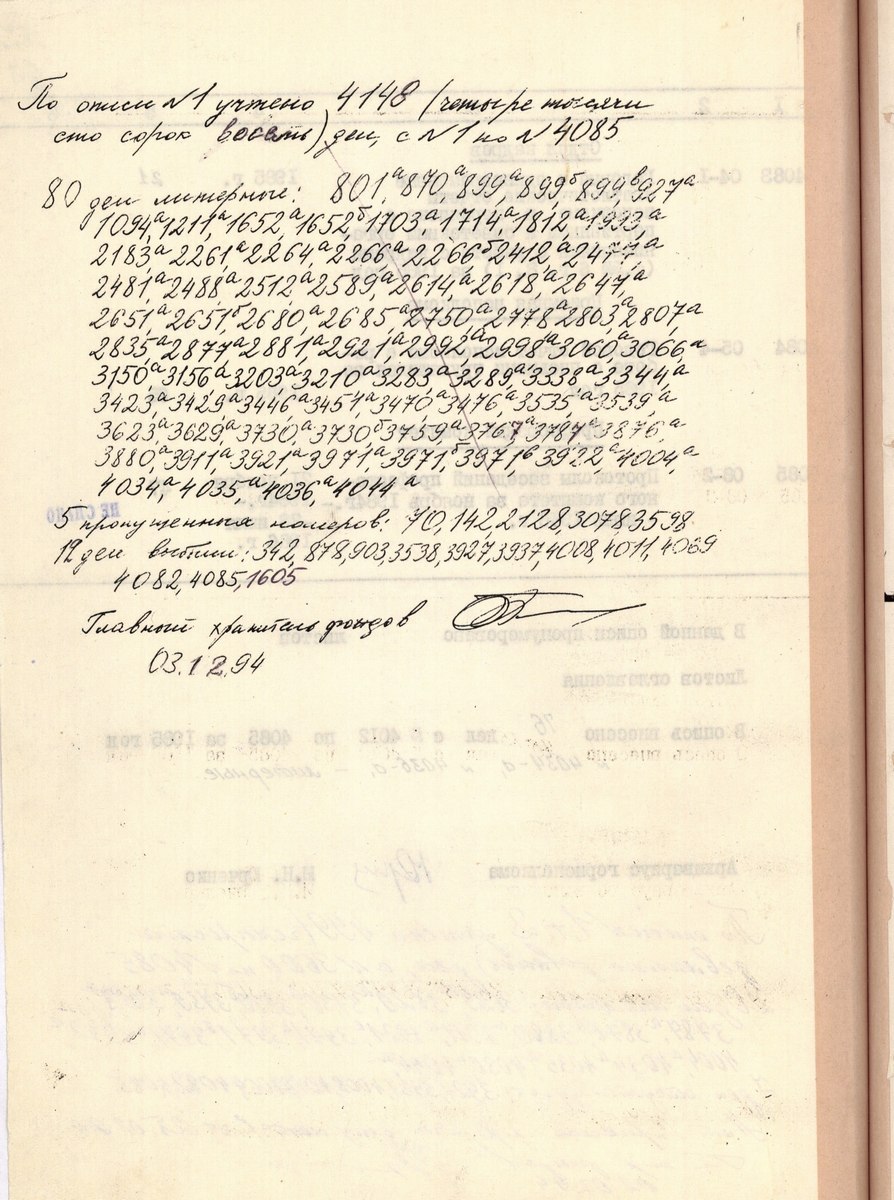 По описи №1 учтено 4148 (четыре тысячи
сто сорок восемь) дел, с №1 по №4085
80 дел литерные: 801а, 870а, 899а, 899б, 899в, 927а
1094а, 1211а, 1652а, 1652б, 1703а, 1714а, 1812а, 1993а
2183а, 2261а, 2264а, 2266а, 2266б, 2412а, 2477а
2481а, 2488а, 2512а, 2589а, 2614а, 2618а, 2647а
2651а, 2651б, 2680а, 2685а, 2750а, 2778а, 2803а, 2807а
2835а, 2877а, 2881а, 2921а, 2992а, 2998а, 3060а, 3066а
3150а, 3156а, 3203а, 3210а, 3283а, 3289а, 3338а, 3344а
3423а, 3429а, 3446а, 3451а, 3470а, 3476а, 3535а, 3539а
3623а, 3629а, 3730а, 3730б, 3759а, 3767а, 3787а, 3876а
3880а, 3911а, 3921а, 3971а, 3971б, 3971в, 3922а, 4004а
4034а, 4035а, 4036а, 4044а
5 пропущенных номеров: 70, 142, 2128, 3078, 3598
12 дел выбыли: 342, 878, 903, 3538, 3927, 3937, 4008, 4011, 4069
4082, 4085, 1605
Главный хранитель фондов
03.12.94